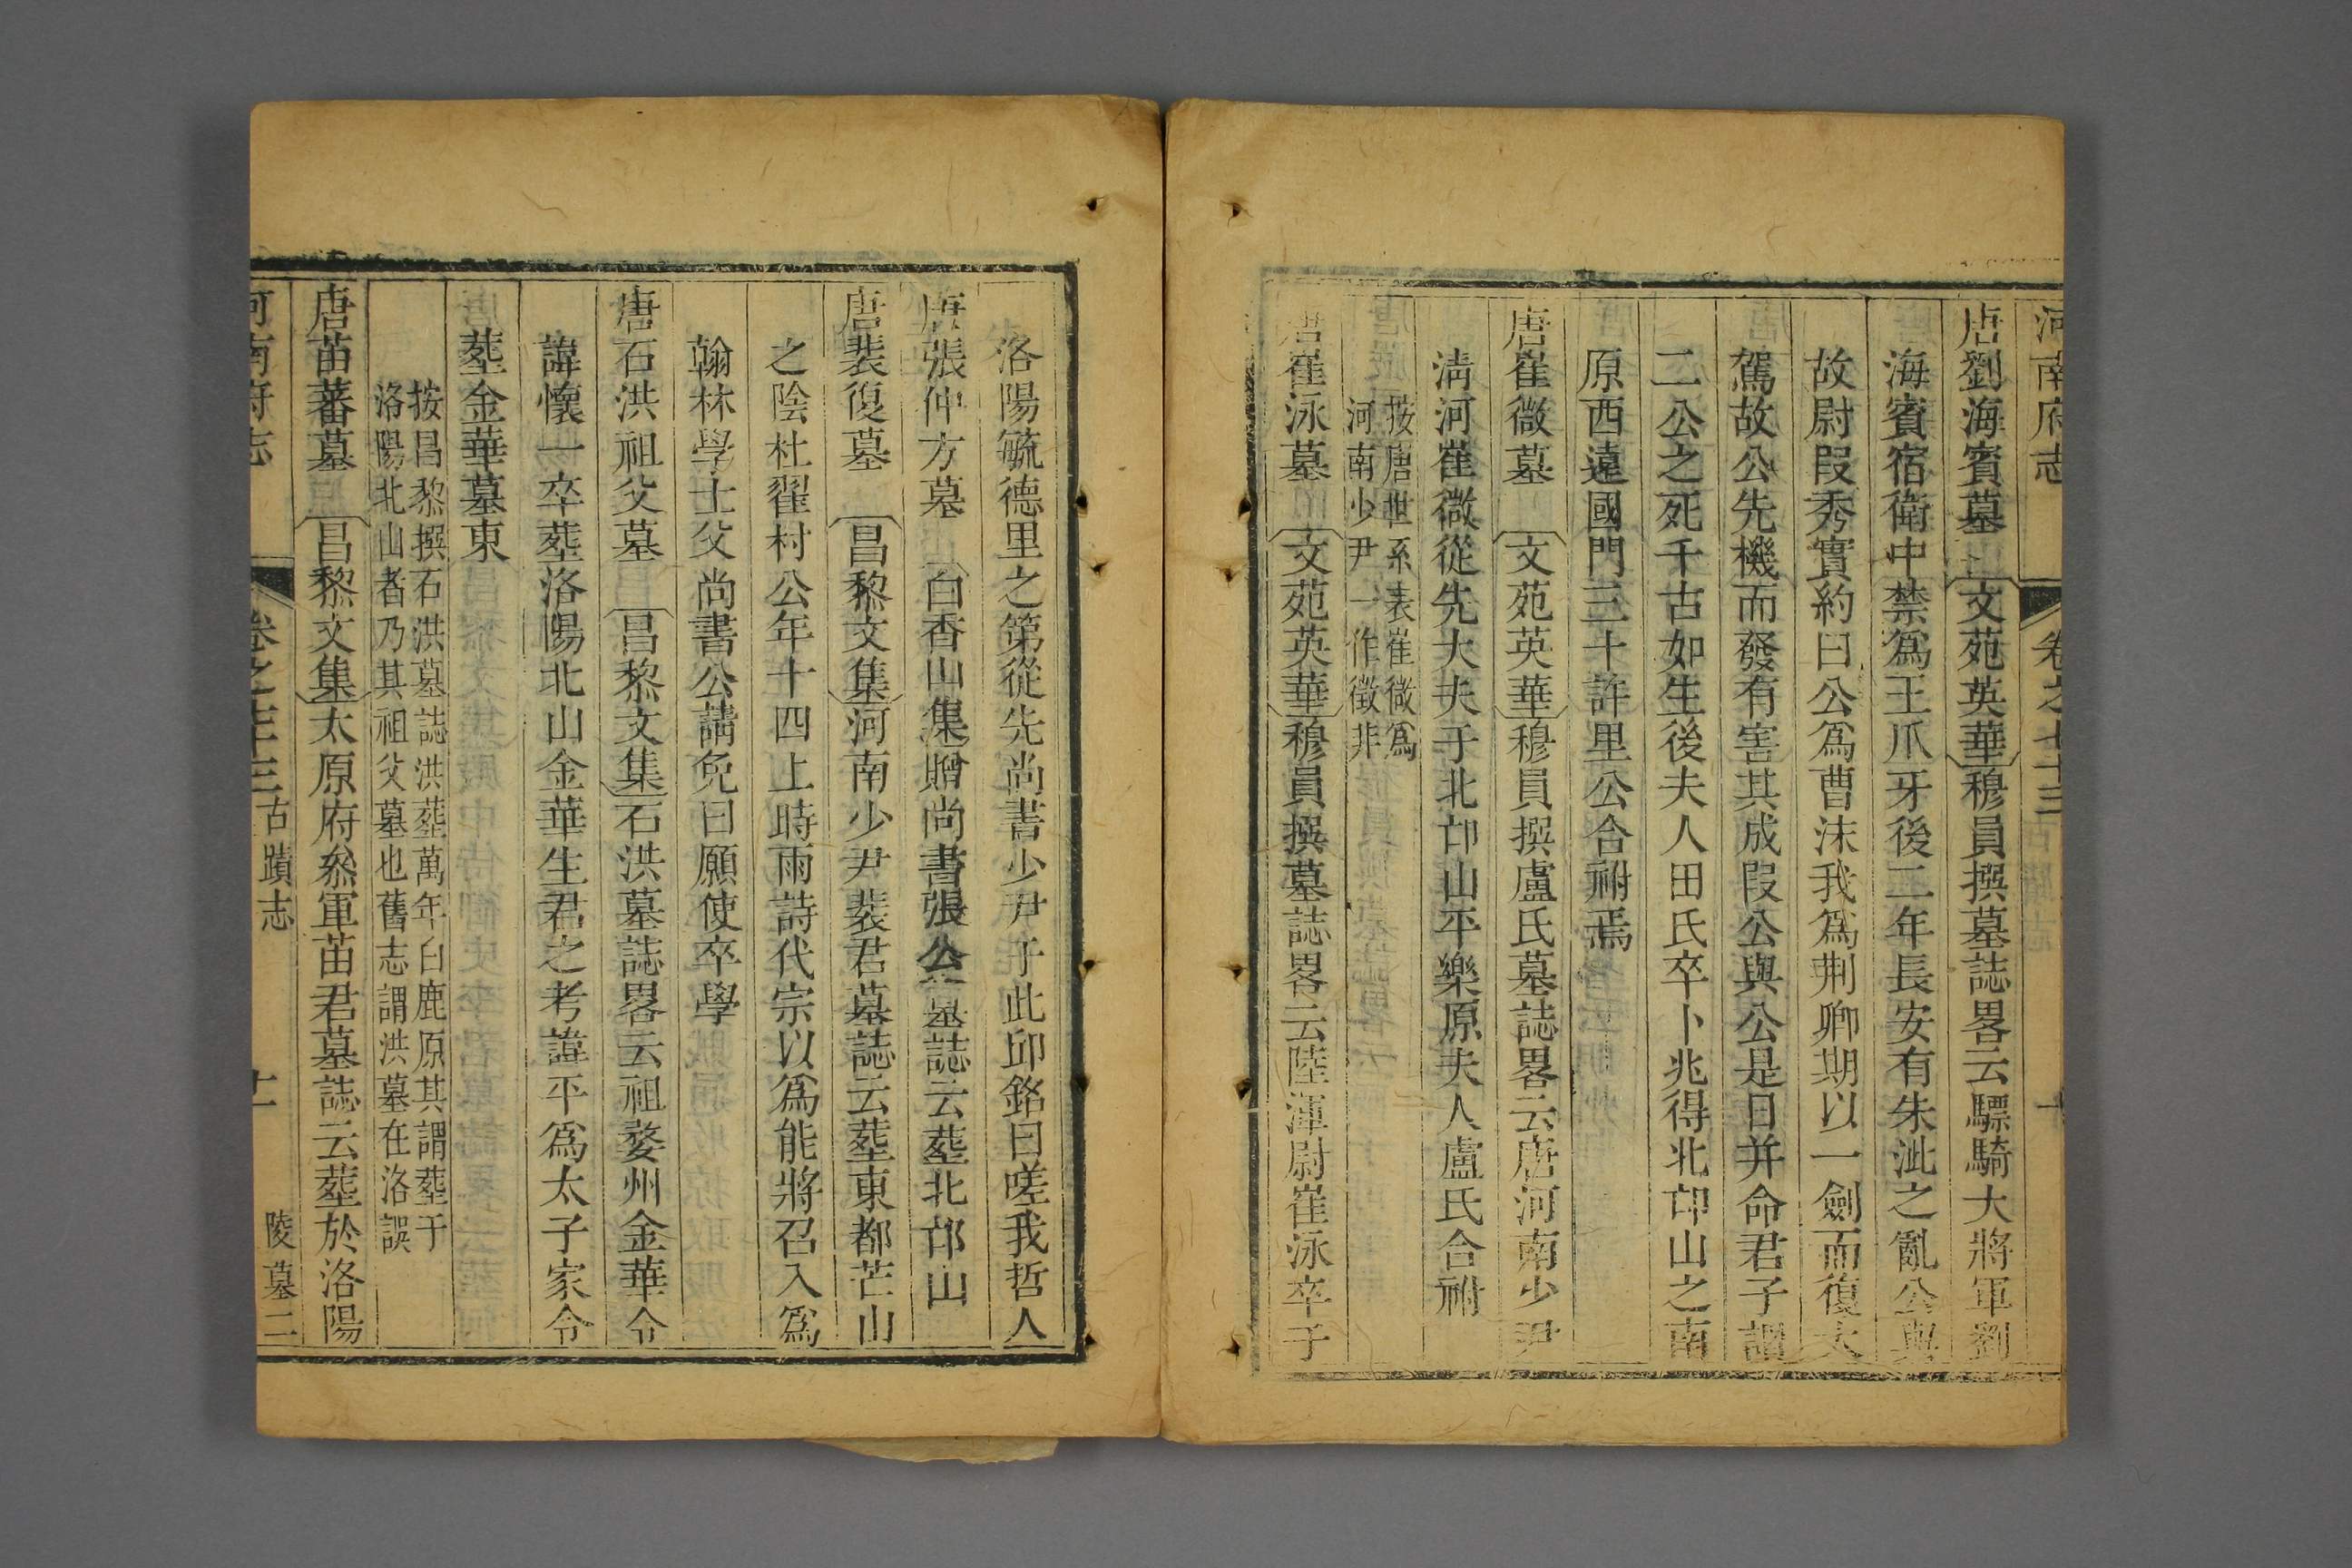 河南府志 卷之七十三
唐劉海賓墓 文苑英華穆員撰墓誌畧云驃騎大將軍劉
海賓宿衛中禁爲王爪牙後二年長安有朱泚之亂公與
故尉叚秀實約曰公爲曹沫我爲荆卿期以一劍而復大
駕故公先機而發有害其成叚公與公是日并命君子謂
二公之死千古如生後夫人田氏卒卜兆得北邙山之南
原西遠國門三十許里公合祔焉
唐崔微墓 文苑英華穆員撰盧氏墓誌畧云唐河南少尹
淸河崔微從先大夫于北邙山平樂原夫人盧氏合祔
按唐世系表崔微爲
河南少尹一作徵非
唐崔泳墓 文苑英華穆員撰墓誌畧云陸渾尉崔泳卒于
洛陽毓德里之第從先尚書少尹于此邱銘曰嗟我哲人
唐張仲方墓 白香山集贈尚書張公墓誌云塟北邙山
唐裴復墓 昌黎文集河南少尹裴君墓誌云塟東都芒山
之陰杜翟村公年十四上時雨詩代宗以爲能將召入爲
翰林學士父尚書公請免曰願使卒學
唐石洪祖父墓 昌黎文集石洪墓誌畧云祖婺州金華令
諱懷一卒塟洛陽北山金華生君之考諱平爲太子家令
塟金華墓東
按昌黎撰石洪墓誌洪塟萬年白鹿原其謂塟于
洛陽北山者乃其祖父墓也舊志謂洪墓在洛誤
唐苗蕃墓 昌黎文集太原府叅軍苗君墓誌云塟於洛陽
河南府志 卷之七十三 古蹟志 陵墓二